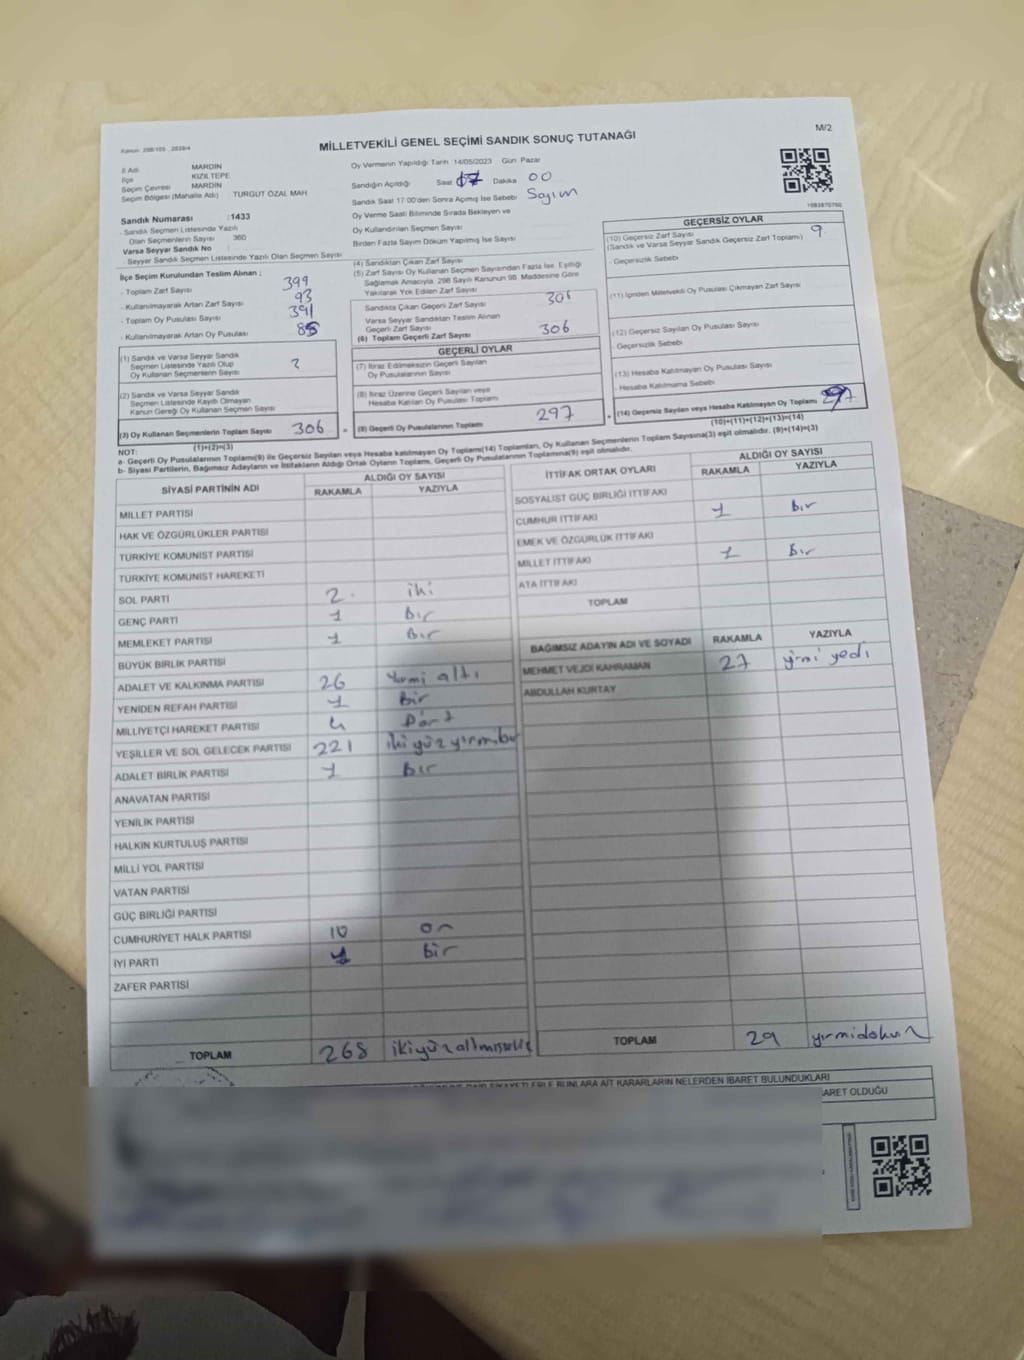 Kanun: 298/105 , 2839/4
MİLLETVEKİLİ GENEL SEÇİMİ SANDIK SONUÇ TUTANAĞI
M/2
İl Adı MARDİN
İlçe KIZILTEPE
Seçim Çevresi MARDİN
Seçim Bölgesi (Mahalle Adı) TURGUT ÖZAL MAH.
Sandık Numarası :1433
- Sandık Seçmen Listesinde Yazılı
Olan Seçmenlerin Sayısı 360
Varsa Seyyar Sandık No
- Seyyar Sandık Seçmen Listesinde Yazılı Olan Seçmen Sayısı
Oy Vermenin Yapıldığı Tarih 14/05/2023 Gün Pazar
Sandığın Açıldığı Saat 17 Dakika 00
Sandık Saat 17.00'den Sonra Açılmış İse Sebebi Sayım
Oy Verme Saati Bitiminde Sırada Bekleyen ve
Oy Kullandırılan Seçmen Sayısı
Birden Fazla Sayım Döküm Yapılmış İse Sayısı
İlçe Seçim Kurulundan Teslim Alınan ;
- Toplam Zarf Sayısı 399
- Kullanılmayarak Artan Zarf Sayısı 93
- Toplam Oy Pusulası Sayısı 391
- Kullanılmayarak Artan Oy Pusulası 85
(1) Sandık ve Varsa Seyyar Sandık
Seçmen Listesinde Yazılı Olup
Oy Kullanan Seçmenlerin Sayısı
(2) Sandık ve Varsa Seyyar Sandık
Seçmen Listesinde Kayıtlı Olmayan
Kanun Gereği Oy Kullanan Seçmen Sayısı
(3) Oy Kullanan Seçmenlerin Toplam Sayısı 306
(1)+(2)=(3)
(4) Sandıktan Çıkan Zarf Sayısı
(5) Zarf Sayısı Oy Kullanan Seçmen Sayısından Fazla İse, Eşitliği
Sağlamak Amacıyla, 298 Sayılı Kanunun 98. Maddesine Göre
Yakılarak Yok Edilen Zarf Sayısı
Sandıkta Çıkan Geçerli Zarf Sayısı 306
Varsa Seyyar Sandıktan Teslim Alınan
Geçerli Zarf Sayısı
(6) Toplam Geçerli Zarf Sayısı 306
GEÇERLİ OYLAR
(7) İtiraz Edilmeksizin Geçerli Sayılan
Oy Pusulalarının Sayısı
(8) İtiraz Üzerine Geçerli Sayılan veya
Hesaba Katılan Oy Pusulası Toplamı
= (9) Geçerli Oy Pusulalarının Toplamı 297
GEÇERSİZ OYLAR
(10) Geçersiz Zarf Sayısı 9
(Sandık ve Varsa Seyyar Sandık Geçersiz Zarf Toplamı)
- Geçersizlik Sebebi
(11) İçinden Milletvekili Oy Pusulası Çıkmayan Zarf Sayısı
(12) Geçersiz Sayılan Oy Pusulası Sayısı
- Geçersizlik Sebebi
(13) Hesaba Katılmayan Oy Pusulası Sayısı
- Hesaba Katılmama Sebebi
+ (14) Geçersiz Sayılan veya Hesaba Katılmayan Oy Toplamı
(10)+(11)+(12)+(13)=(14)
NOT:
a- Geçerli Oy Pusulalarının Toplamı(9) ile Geçersiz Sayılan veya Hesaba katılmayan Oy Toplamı(14) Toplamları, Oy Kullanan Seçmenlerin Toplam Sayısına(3) eşit olmalıdır. (9)+(14)=(3)
b- Siyasi Partilerin, Bağımsız Adayların ve İttifakların Aldığı Ortak Oyların Toplamı, Geçerli Oy Pusulalarının Toplamına(9) eşit olmalıdır.
SİYASİ PARTİNİN ADI ALDIĞI OY SAYISI
RAKAMLA YAZIYLA
MİLLET PARTİSİ
HAK VE ÖZGÜRLÜKLER PARTİSİ
TÜRKİYE KOMÜNİST PARTİSİ
TÜRKİYE KOMÜNİST HAREKETİ
SOL PARTİ 2 iki
GENÇ PARTİ 1 Bir
MEMLEKET PARTİSİ 1 Bir
BÜYÜK BİRLİK PARTİSİ
ADALET VE KALKINMA PARTİSİ 26 Yirmi altı
YENİDEN REFAH PARTİSİ 1 Bir
MİLLİYETÇİ HAREKET PARTİSİ 4 Dört
YEŞİLLER VE SOL GELECEK PARTİSİ 221 iki yüz yirmibir
ADALET BİRLİK PARTİSİ 1 Bir
ANAVATAN PARTİSİ
YENİLİK PARTİSİ
HALKIN KURTULUŞ PARTİSİ
MİLLİ YOL PARTİSİ
VATAN PARTİSİ
GÜÇ BİRLİĞİ PARTİSİ
CUMHURİYET HALK PARTİSİ 10 on
İYİ PARTİ 1 bir
ZAFER PARTİSİ
TOPLAM 268 ikiyüz altmışsekiz
İTTİFAK ORTAK OYLARI ALDIĞI OY SAYISI
RAKAMLA YAZIYLA
SOSYALİST GÜÇ BİRLİĞİ İTTİFAKI
CUMHUR İTTİFAKI 1 bir
EMEK VE ÖZGÜRLÜK İTTİFAKI
MİLLET İTTİFAKI 1 bir
ATA İTTİFAKI
TOPLAM
BAĞIMSIZ ADAYIN ADI VE SOYADI RAKAMLA YAZIYLA
MEHMET VEJDİ KAHRAMAN 27 yirmi yedi
ABDULLAH KURTAY
TOPLAM 29 yirmidokuz
KARARLARIN NELERDEN İBARET BULUNDUKLARI